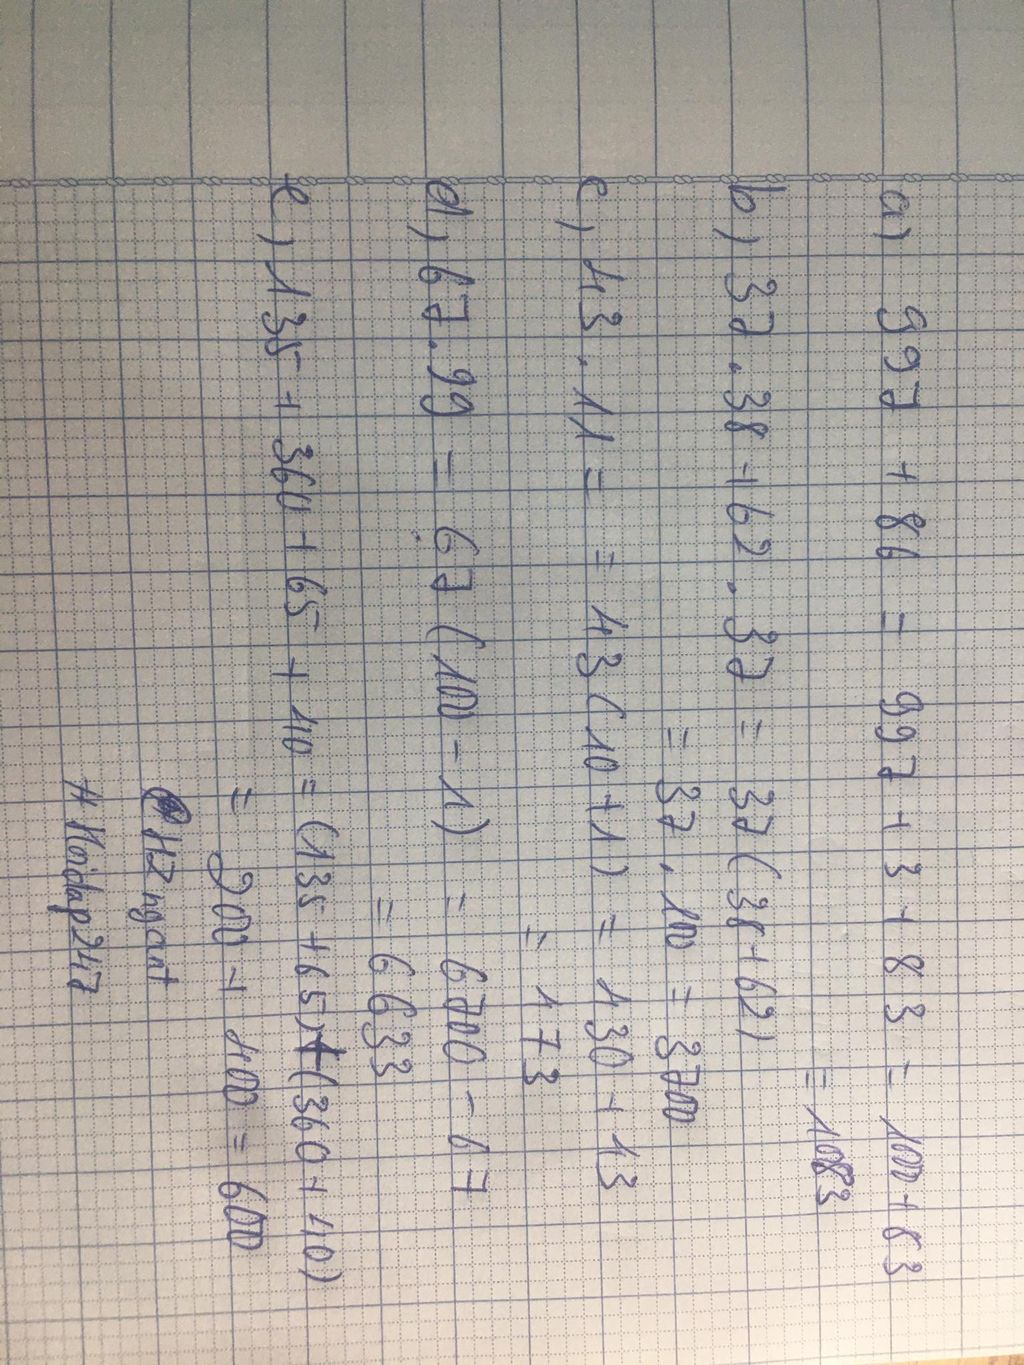 a) 997 + 86 = 997 + 3 + 83 = 1000 + 83
= 1083
b) 37 . 38 + 62 . 37 = 37 (38 + 62)
= 37 . 100 = 3700
c) 43 . 11 = = 43 (10 + 1) = 430 + 43
= 473
d) 67 . 99 = 67 (100 - 1) = 6700 - 67
= 6633
e) 135 + 360 + 65 + 40 = (135 + 65) + (360 + 40)
= 200 + 400 = 600
# Hoidap247